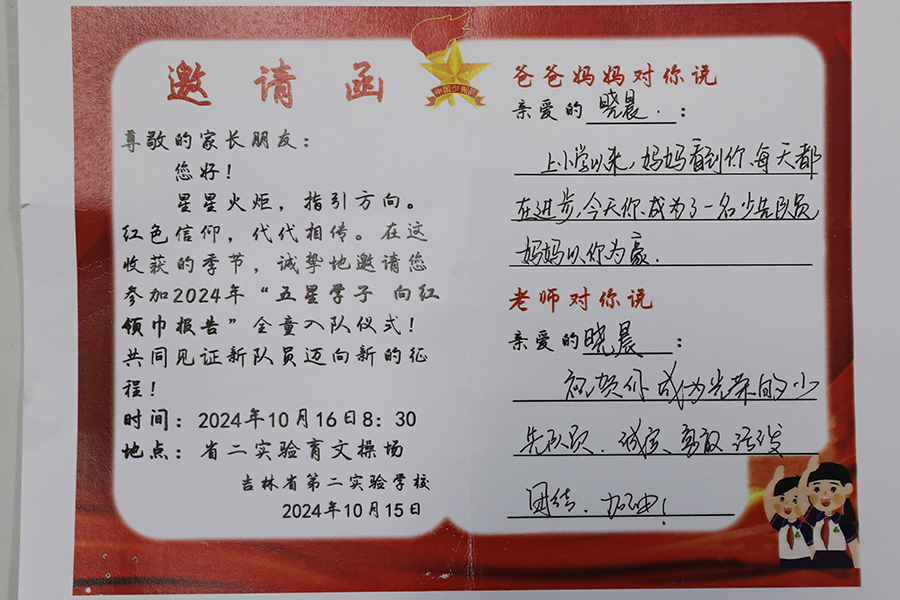 邀请函
中国少先队
尊敬的家长朋友：
您好！
星星火炬，指引方向。
红色信仰，代代相传。在这
收获的季节，诚挚地邀请您
参加2024年“五星学子 向红
领巾报告”全童入队仪式！
共同见证新队员迈向新的征
程！
时间：2024年10月16日8：30
地点：省二实验育文操场
吉林省第二实验学校
2024年10月15日
爸爸妈妈对你说
亲爱的 晓晨.：
上小学以来,妈妈看到你每天都
在进步,今天你成为了一名少先队员
妈妈以你为豪.
老师对你说
亲爱的晓晨：
祝贺你成为光荣的少
先队员.诚实、勇敢 活泼
团结.加油!